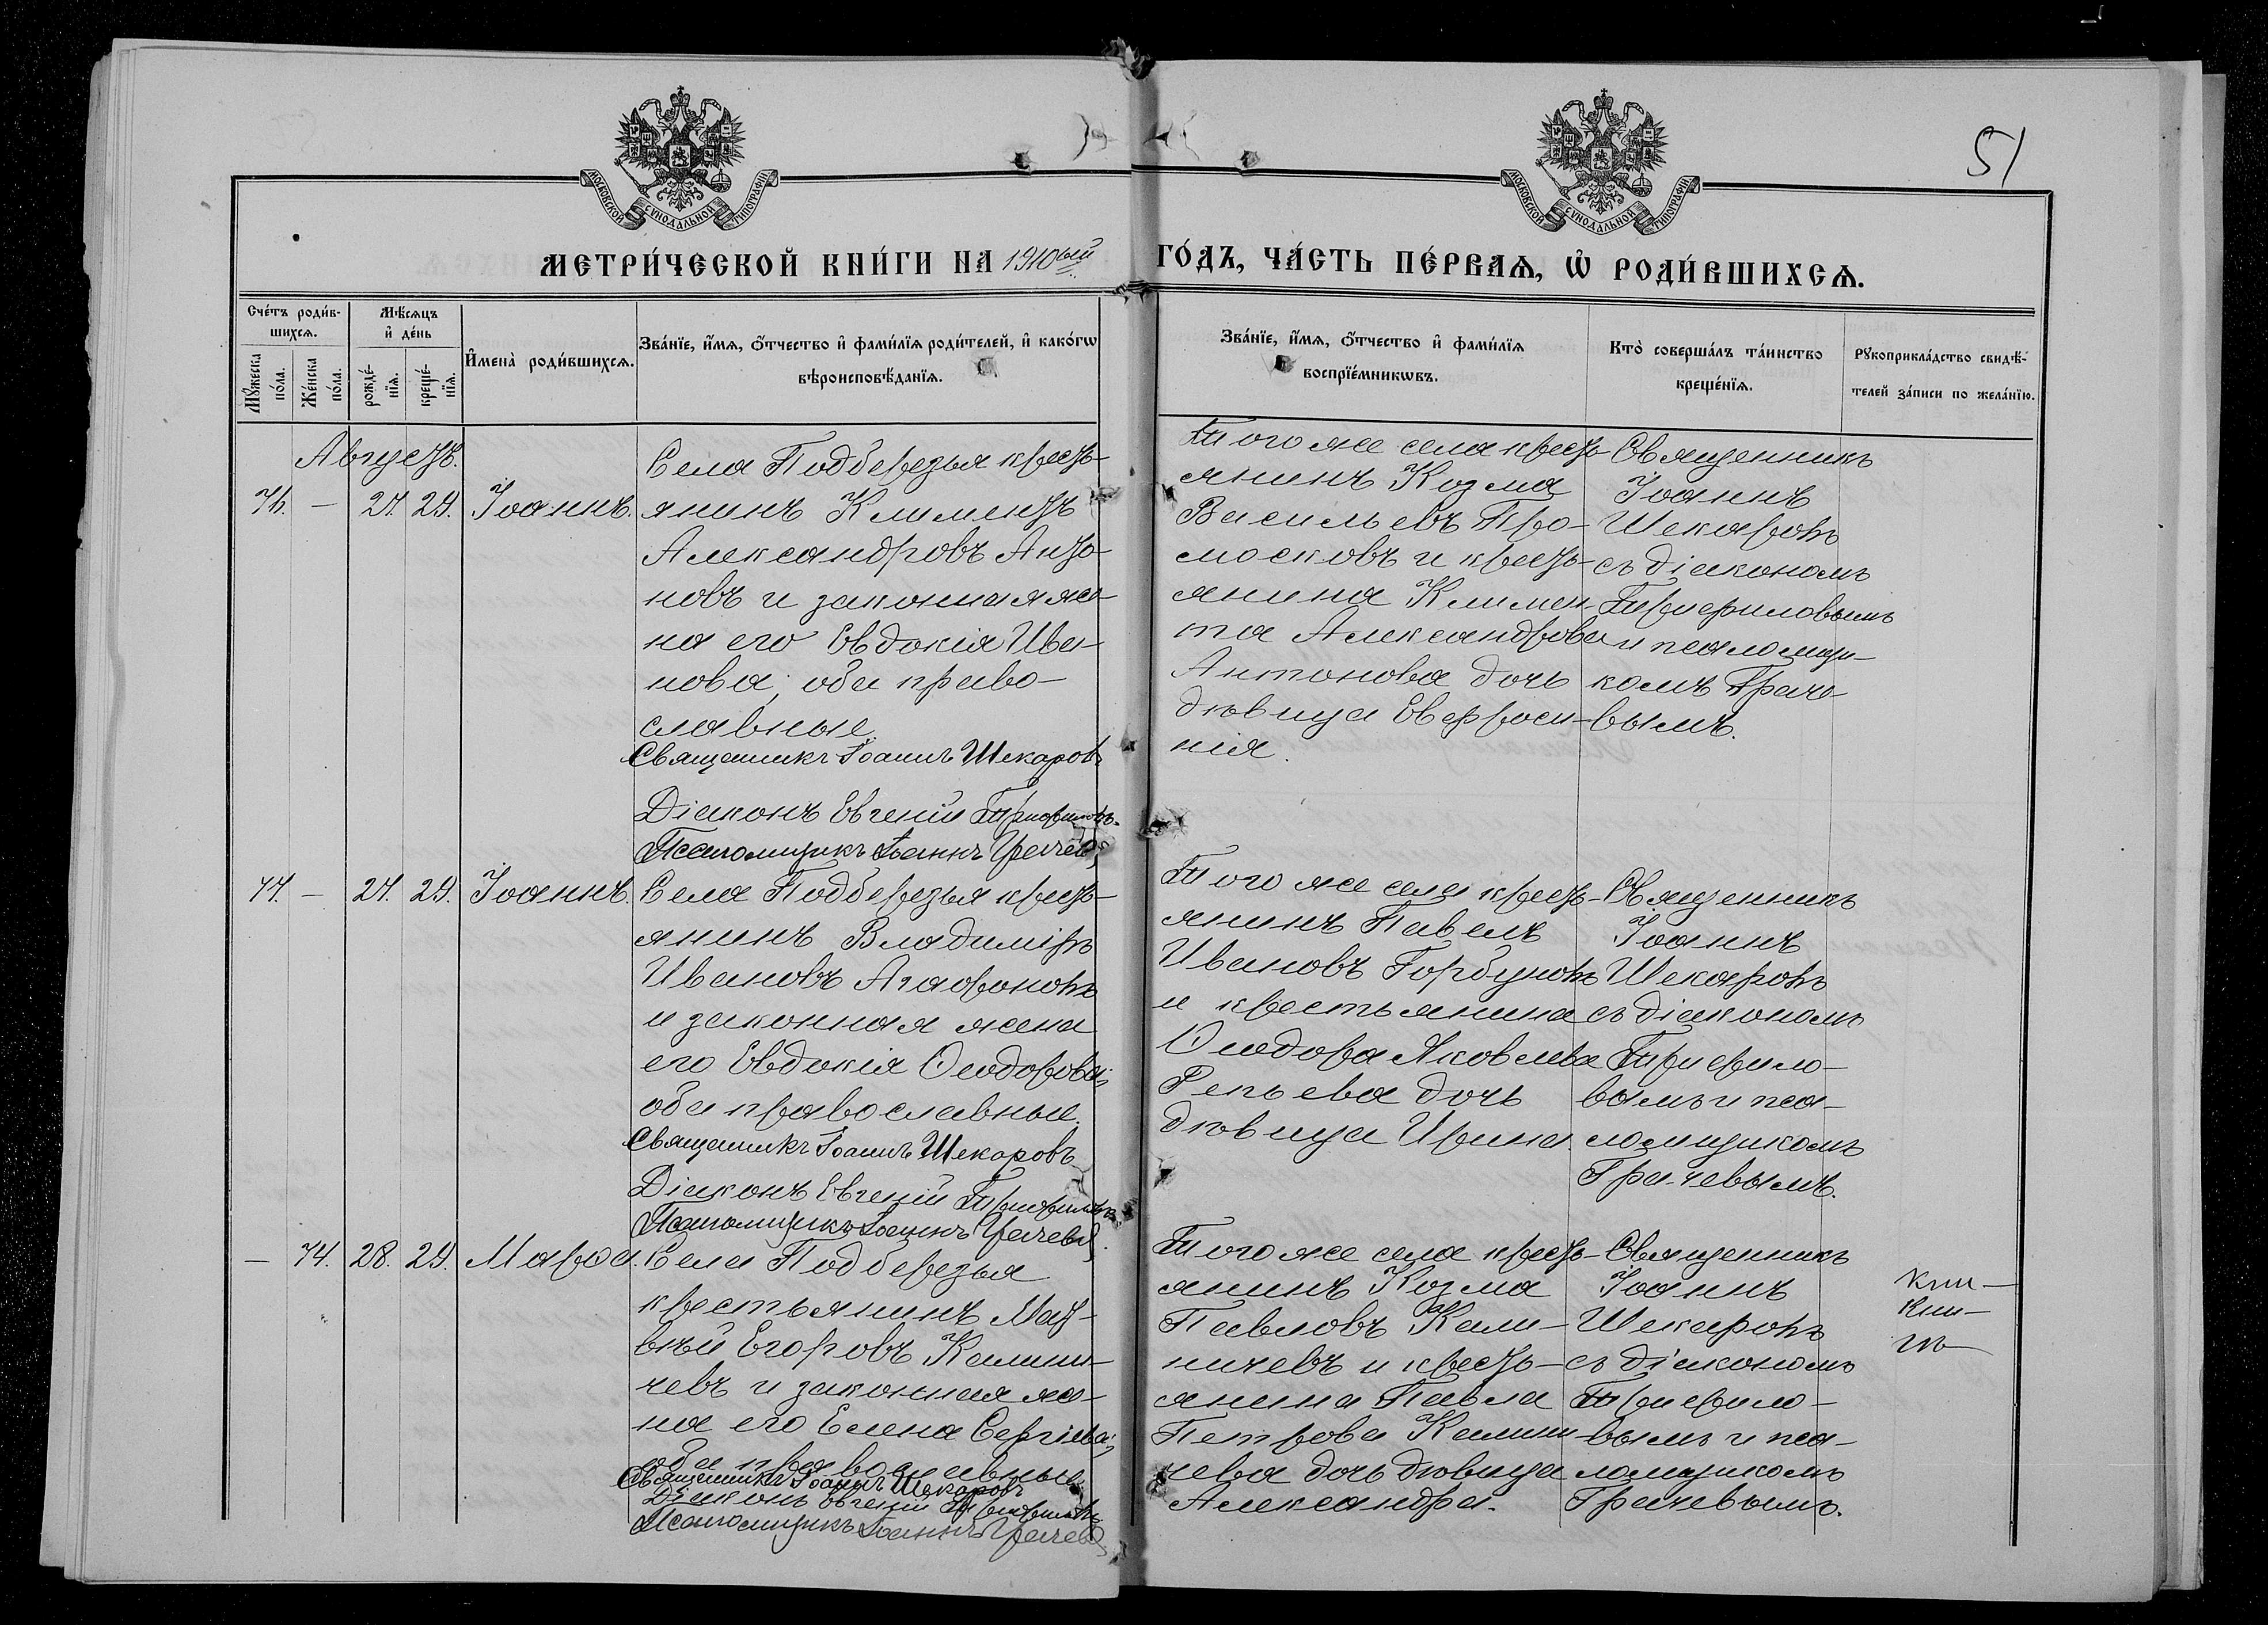 51
МОСКОВСКОЙ СѴНОДАЛЬНОЙ ТИПОГРАФІИ
МОСКОВСКОЙ СѴНОДАЛЬНОЙ ТИПОГРАФІИ
МЕТРИ́ЧЕСКОЙ КНИ́ГИ НА 1910ый
ГО́ДЪ, ЧА́СТЬ ПЕ́РВАѦ, Ѡ҆ РОДИ́ВШИХСѦ.
Сче́тъ роди́в-
шихсѧ.
Мꙋ́жеска
по́ла.
Же́нска
по́ла.
Мѣ́сѧцъ
и҆ де́нь
рожде́-
нїѧ.
креще́-
нїѧ.
И҆мена̀ роди́вшихсѧ.
Зва́нїе, и҆́мѧ, ѻ҆́тчество и҆ фами́лїѧ роди́телей, и҆ како́гѡ
вѣроисповѣ́данїѧ.
Зва́нїе, и҆́мѧ, ѻ҆́тчество и҆ фами́лїѧ
воспрїе́мникѡвъ.
Кто̀ соверша́лъ та́инство
креще́нїѧ.
Рꙋкоприкла́дство свидѣ́-
телей за́писи по жела́нїю.
Августъ.
76. — 27. 29. Іоаннъ.
Села Подберезья кресть-
янинъ Климентъ
Александровъ Анто-
новъ и законная же-
на его Евдокія Ива-
нова; оба право-
славные.
Священникъ Іоаннъ Шекаровъ
Діаконъ Евгеній Трифиловъ.
Псаломщикъ Іоаннъ Грачевъ
Того же села кресть-
янинъ Козма
Васильевъ Про-
московъ и кресть-
янина Климен-
та Александрова
Антонова дочь
дѣвица Евфроси-
нія.
Священникъ
Іоаннъ
Шекаровъ
съ діакономъ
Трифиловымъ
и псаломщи-
комъ Граче-
вымъ.
77. — 27. 29. Іоаннъ.
Села Подберезья кресть-
янинъ Владиміръ
Ивановъ Агафоновъ
и законная жена
его Евдокія Ѳеодорова;
оба православные.
Священникъ Іоаннъ Шекаровъ
Діаконъ Евгеній Трифиловъ
Псаломщикъ Іоаннъ Грачевъ.
Того же села кресть-
янинъ Павелъ
Ивановъ Горбуновъ
и крестьянина
Ѳеодора Яковлева
Репьева дочь
дѣвица Ирина.
Священникъ
Іоаннъ
Шекаровъ
съ діакономъ
Трифило-
вымъ и пса-
ломщикомъ
Грачевымъ.
— 74. 28. 29. Марѳа.
Села Подберезья
крестьянинъ Мат-
вѣй Егоровъ Калини-
чевъ и законная же-
на его Елена Сергіева;
оба православные.
Священникъ Іоаннъ Шекаровъ
Діаконъ Евгеній Трифиловъ
Псаломщикъ Іоаннъ Грачевъ
Того же села кресть-
янинъ Козма
Павловъ Кали-
ничевъ и кресть-
янина Павла
Петрова Калини-
чева дочь дѣвица
Александра.
Священникъ
Іоаннъ
Шекаровъ
съ діакономъ
Трифило-
вымъ и пса-
ломщикомъ
Грачевымъ.